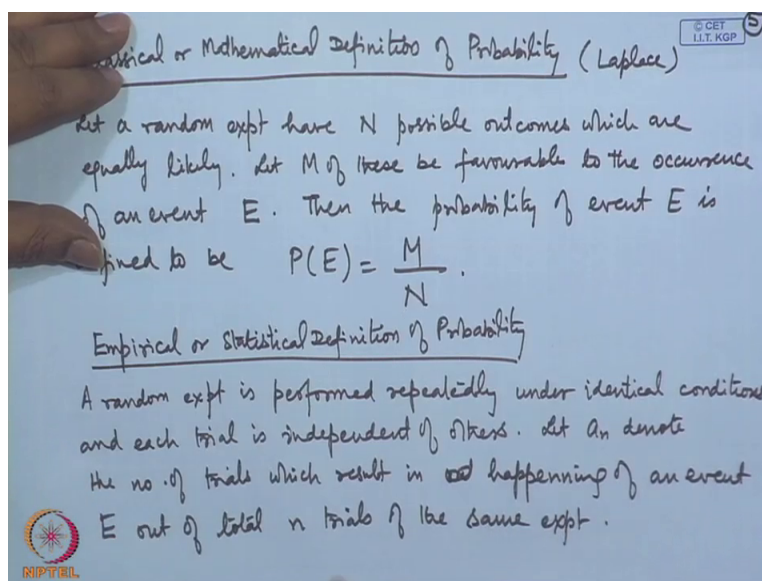 © CET
I.I.T. KGP
5
lassical or Mathematical Definition of Probability (Laplace)
Let a random expt have N possible outcomes which are
equally likely. Let M of these be favourable to the occurrence
of an event E. Then the probability of event E is
fined to be P(E) = M/N.
Empirical or Statistical Definition of Probability
A random expt is performed repeatedly under identical conditions
and each trial is independent of others. Let an denote
the no. of trials which result in happenning of an event
E out of total n trials of the same expt.
NPTEL